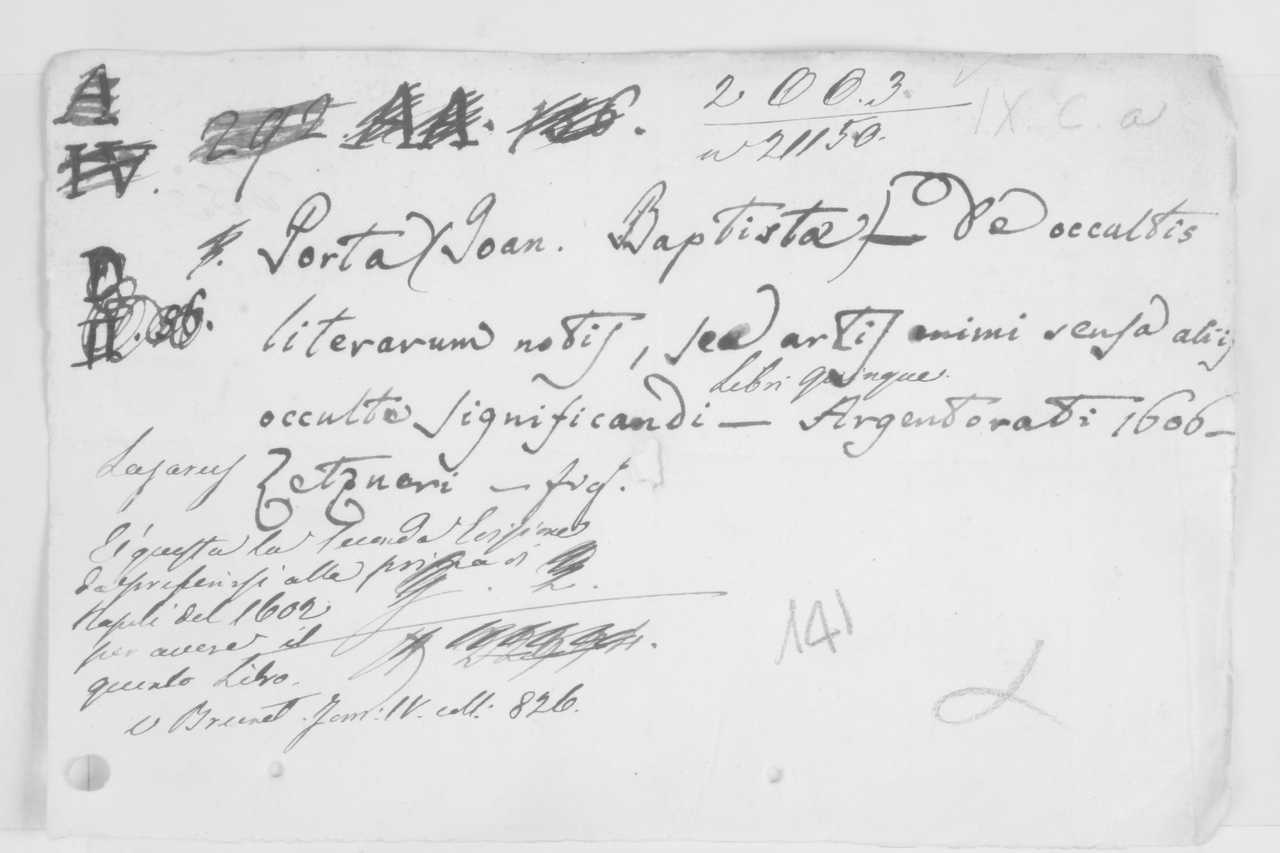 A
IV.
292. AA. 126.
2003
n 21150.
IX. C. a
Porta (Joan. Baptista) — De occultis
D
II. 36.
literarum notis, seu artis animi sensa aliis
Libri quinque
occulte significandi — Argentorati 1606 —
Lazarus Zetzneri — fig.
E' questa la seconda Edizione
da preferirsi alla prima di
Napoli del 1602
per avere il
quinto Libro.
v Brunet. Tom: IV. coll: 826.
141